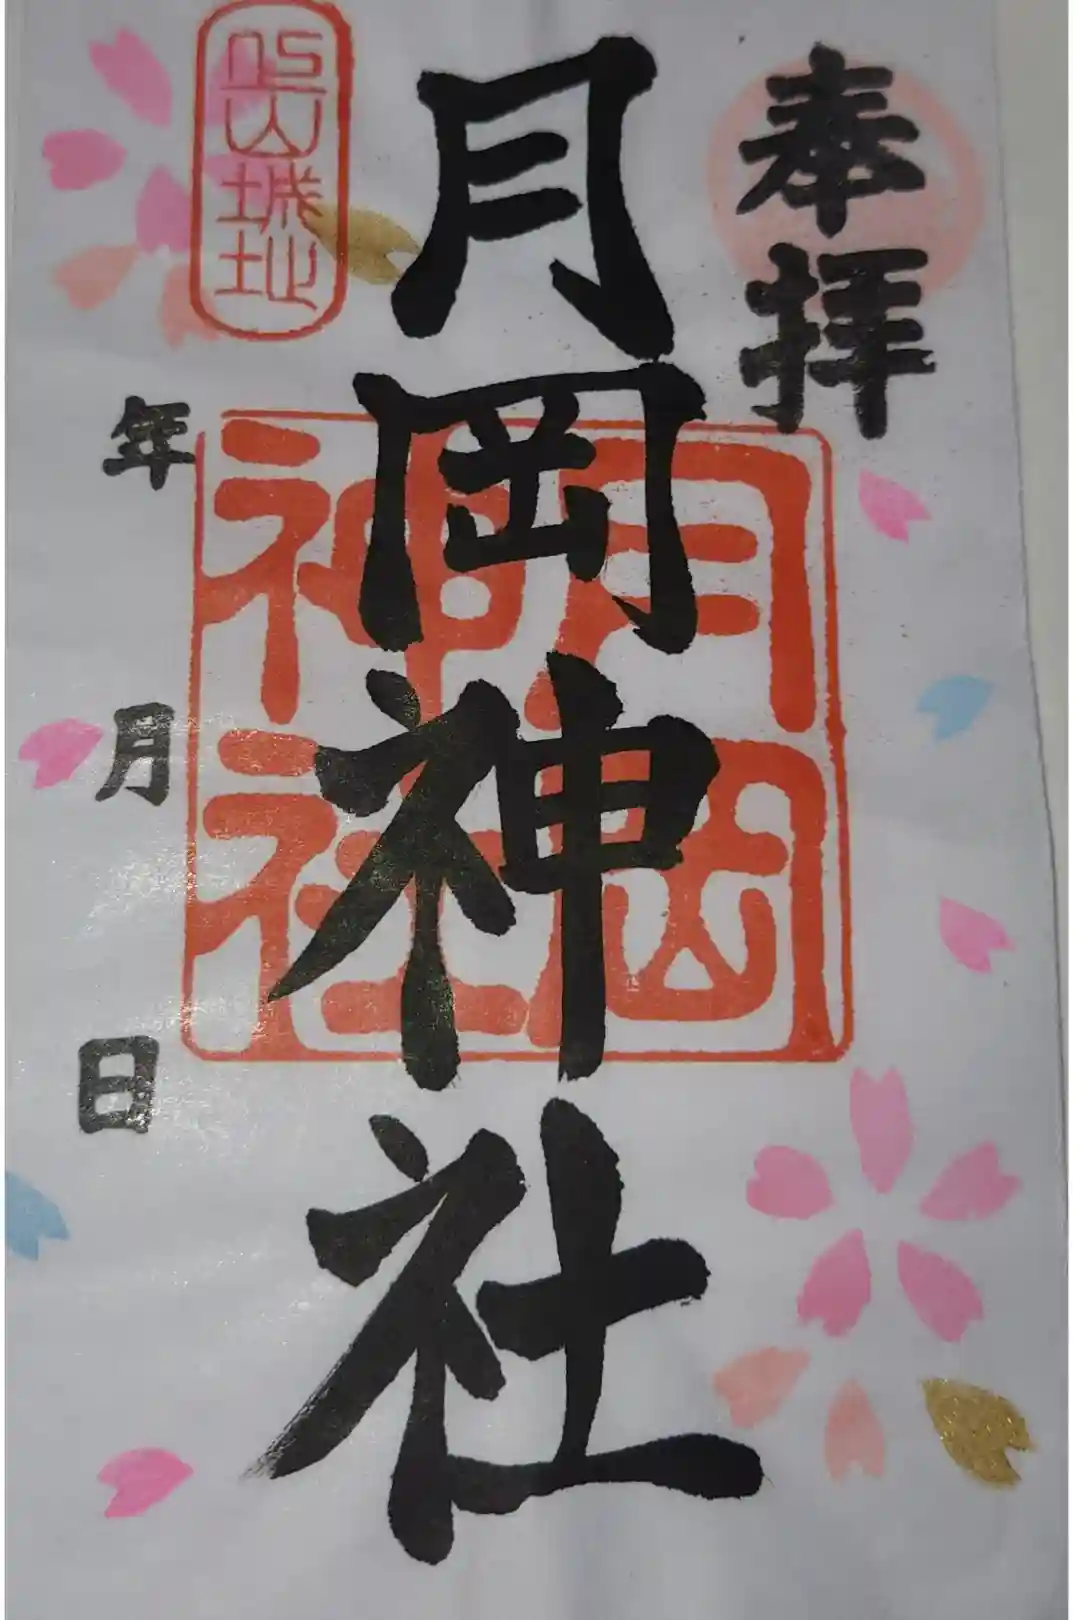 奉拝
月岡神社
月岡
神社
山城址
年 月 日